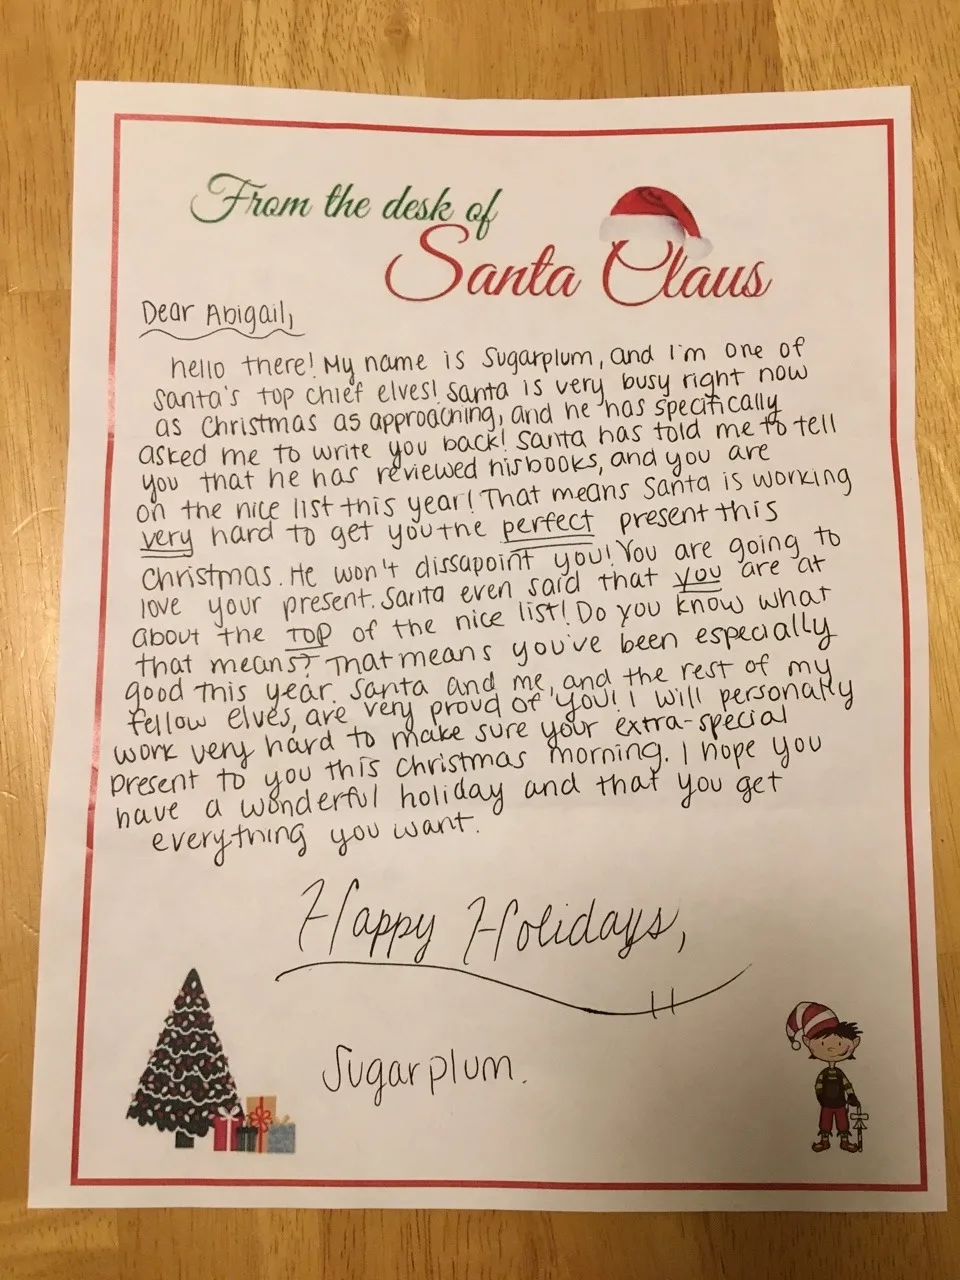 From the desk of
Santa Claus
Dear Abigail,
hello there! My name is Sugarplum, and I'm one of
Santa's top chief elves! Santa is very busy right now
as Christmas as approaching, and he has specifically
asked me to write you back! Santa has told me to tell
you that he has reviewed his books, and you are
on the nice list this year! That means Santa is working
very hard to get you the perfect present this
Christmas. He won't dissapoint you! You are going to
love your present. Santa even said that you are at
about the TOP of the nice list! Do you know what
that means? That means you've been especially
good this year. Santa and me, and the rest of my
fellow elves, are very proud of you! I will personally
work very hard to make sure your extra-special
present to you this Christmas morning. I hope you
have a wonderful holiday and that you get
everything you want.
Happy Holidays,
Sugarplum.